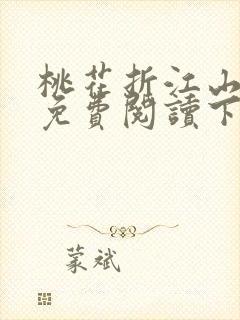 桃花折江山
免費閱讀下
蒙斌